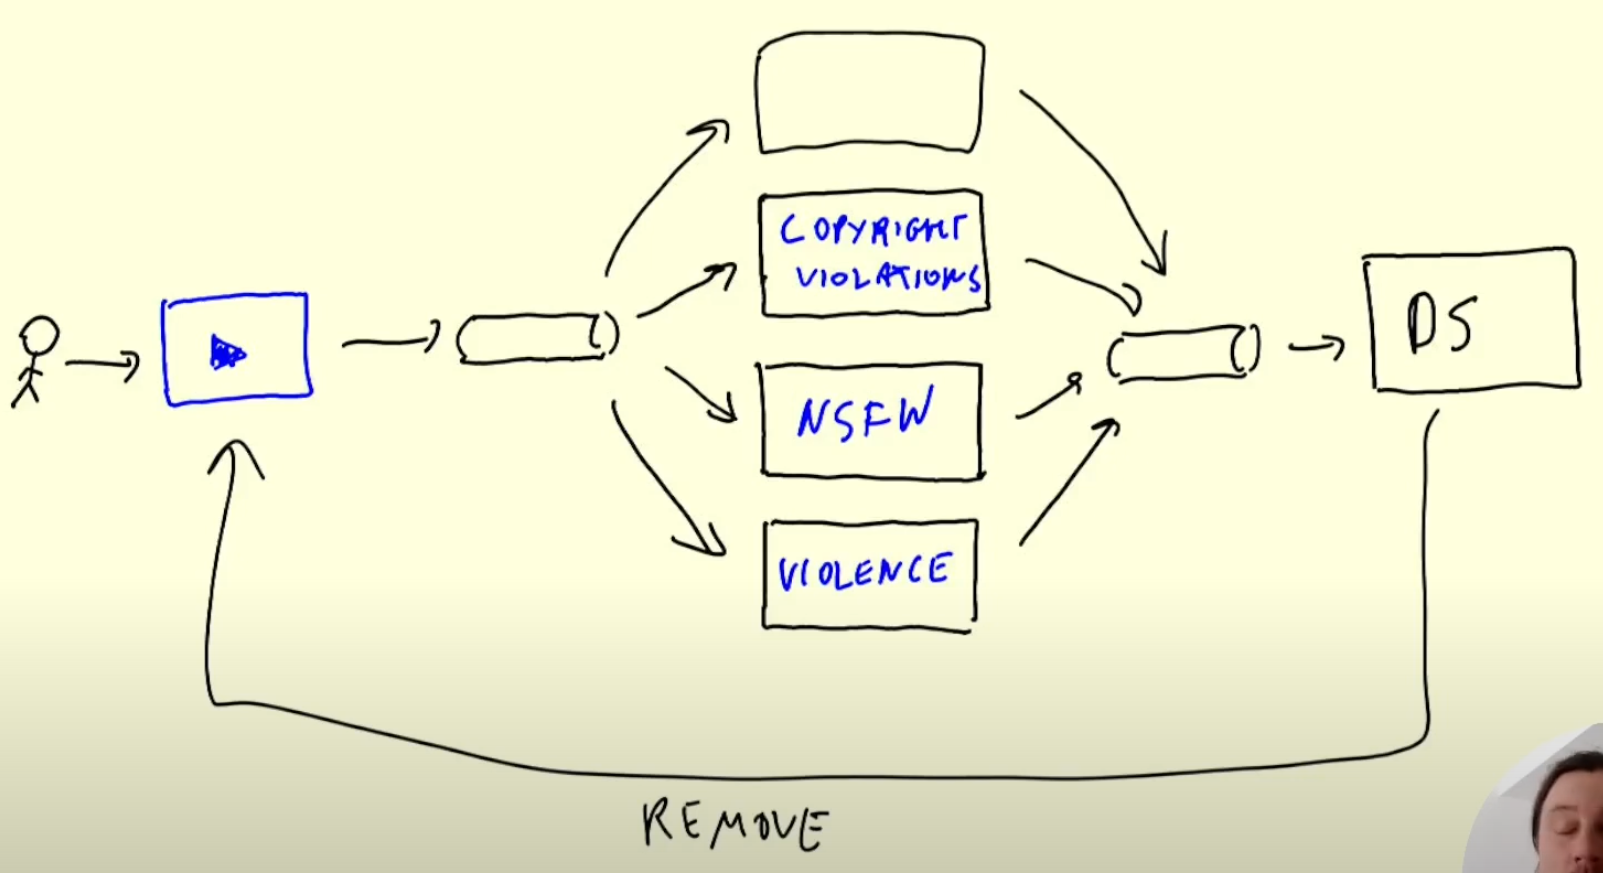 COPYRIGHT
VIOLATIONS
NSFW
VIOLENCE
DS
REMOVE